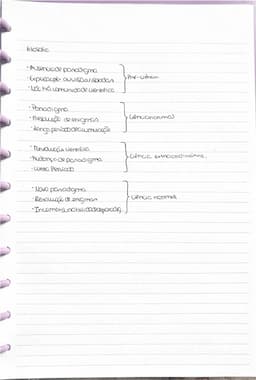 · Ausência de paradigma
· Não há comunidade científica
Pré-ciência
· Paradigma
· Resolução de enigmas
· Longo período de acumulação
Ciência normal
· Revolução científica
· Mudança de paradigma
· Curto Período
Ciência extraordinária
· Novo paradigma
· Resolução de enigmas
· Incomensurabilidade
Ciência normal